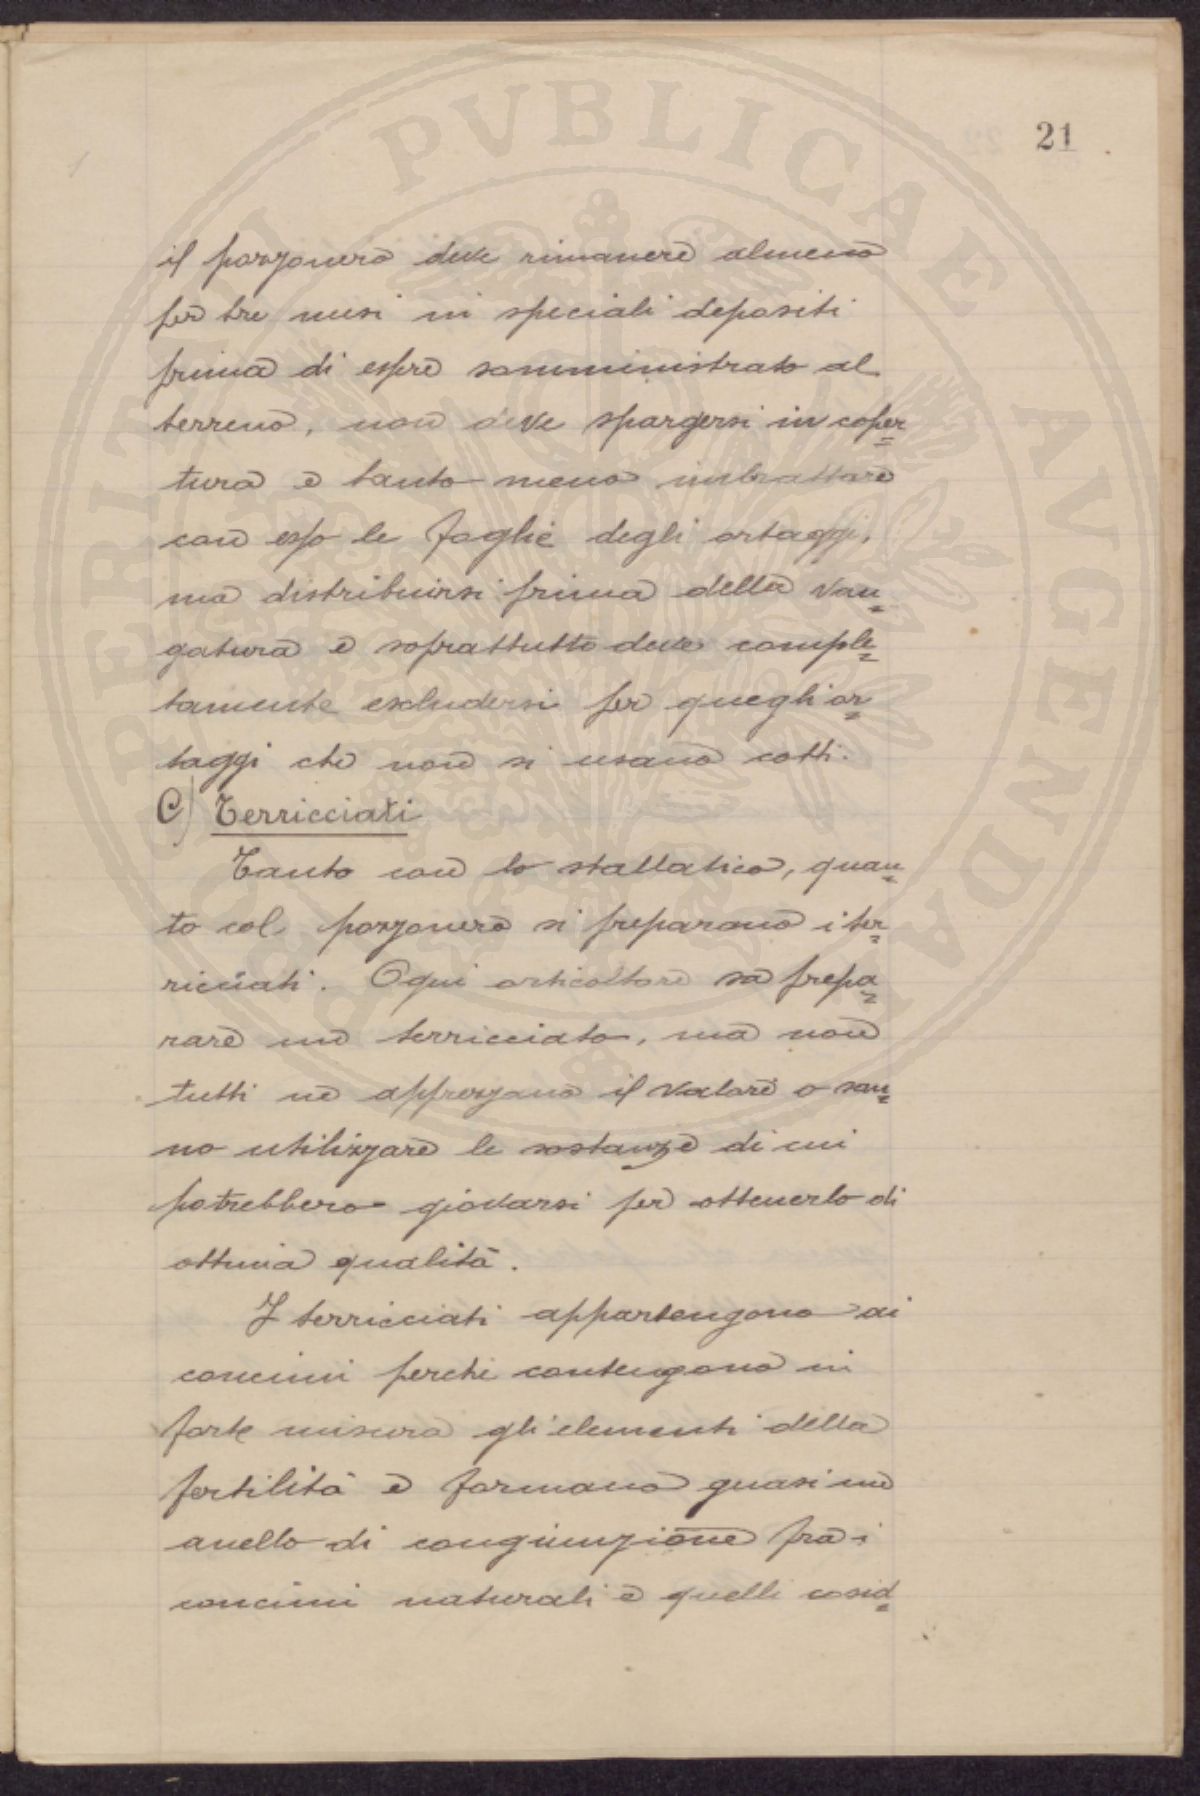 21
il pozzonero deve rimanere almeno
per tre mesi in speciali depositi
prima di essere somministrato al
terreno, non deve spargersi in coper=
tura e tanto meno imbrattare
con esso le foglie degli ortaggi,
ma distribuirsi prima della van=
gatura e soprattutto deve comple=
tamente escludersi per quegli or=
taggi che non si usano cotti.
C) Terricciati
Tanto con lo stallatico, quan=
to col pozzonero si preparano i ter=
ricciati. Ogni orticoltore sa prepa=
rare un terricciato, ma non
tutti ne apprezzano il valore o san=
no utilizzare le sostanze di cui
potrebbero giovarsi per ottenerlo di
ottima qualità.
I terricciati appartengono ai
concimi perchè contengono in
forte misura gli elementi della
fertilità e formano quasi un
anello di congiunzione fra i
concimi naturali e quelli cosid=
PERITUR PVBLICAE AVGENDA